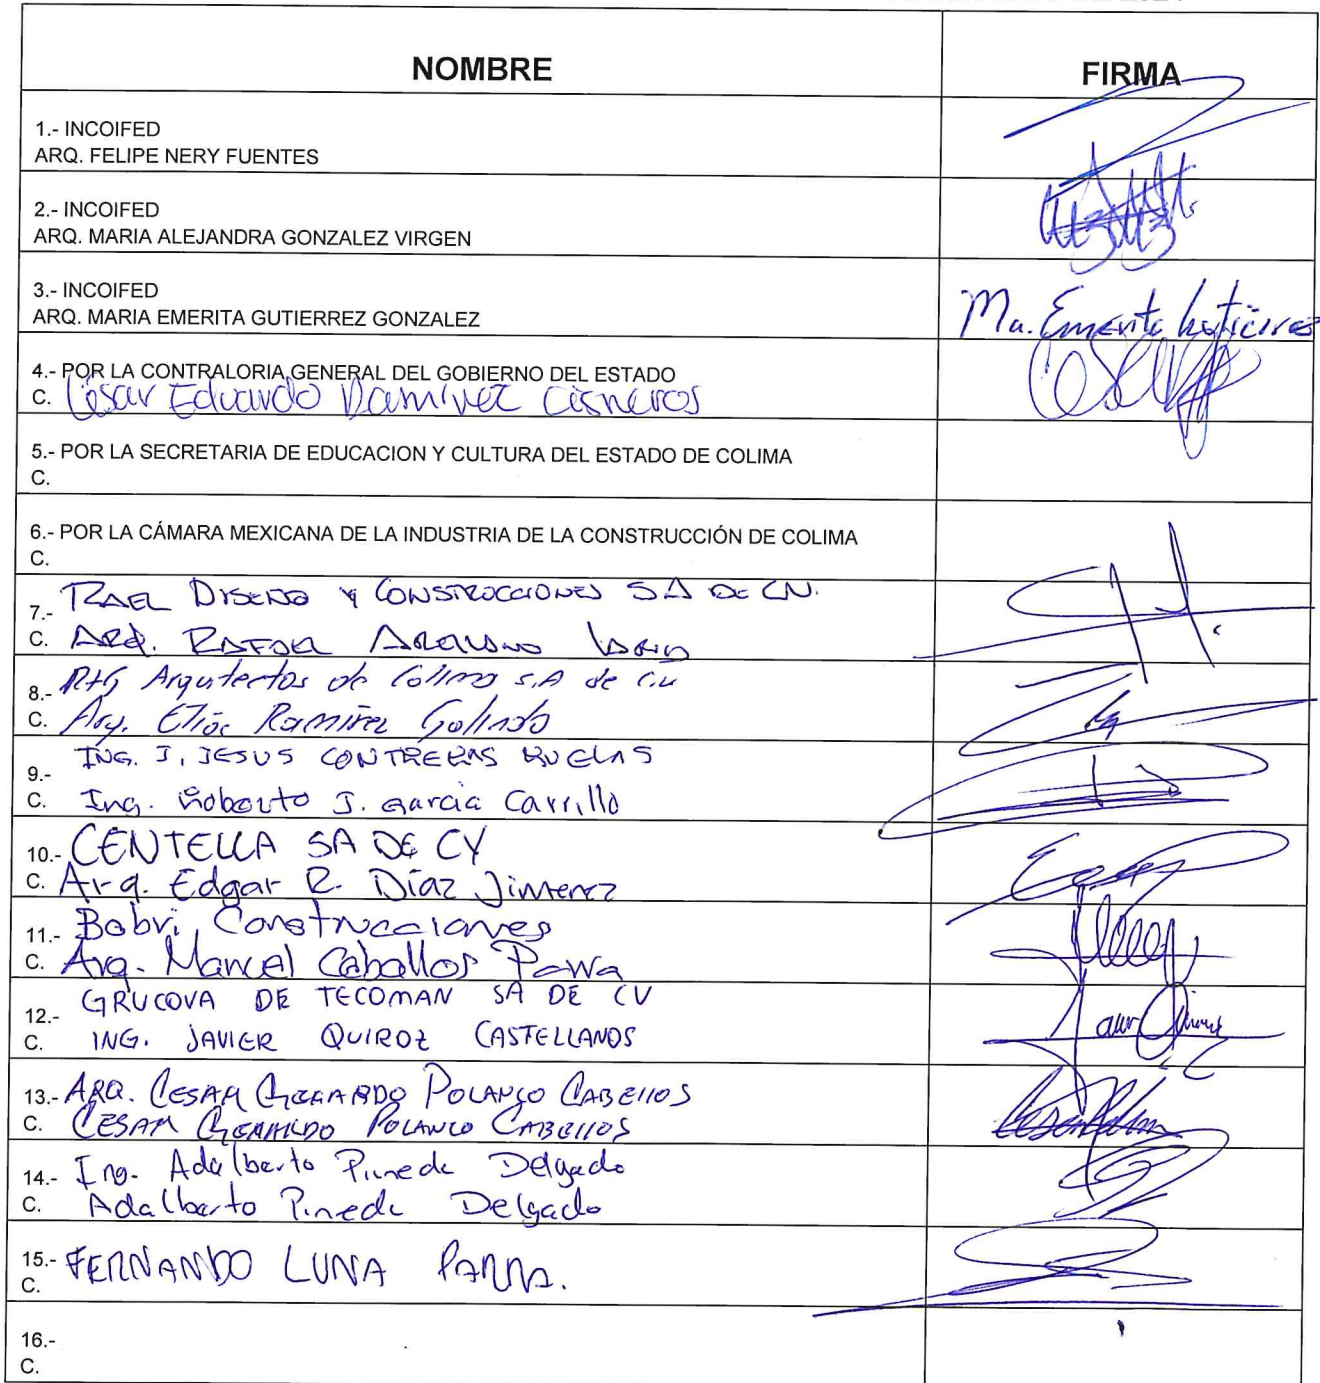 NOMBRE
FIRMA
1.- INCOIFED
ARQ. FELIPE NERY FUENTES
2.- INCOIFED
ARQ. MARIA ALEJANDRA GONZALEZ VIRGEN
3.- INCOIFED
ARQ. MARIA EMERITA GUTIERREZ GONZALEZ
Ma. Emerita Gutiérrez
4.- POR LA CONTRALORIA GENERAL DEL GOBIERNO DEL ESTADO
C. César Eduardo Ramírez Cisneros
5.- POR LA SECRETARIA DE EDUCACION Y CULTURA DEL ESTADO DE COLIMA
C.
6.- POR LA CÁMARA MEXICANA DE LA INDUSTRIA DE LA CONSTRUCCIÓN DE COLIMA
C.
7.- RAEL DISEÑO Y CONSTRUCCIONES SA DE CV.
C. ARQ. RAFAEL
8.- Arquitectos de Colima S.A de C.V
C. Arq. Elioc Ramirez Galindo
9.- ING. J. JESUS CONTRERAS RUELAS
C. Ing. Roberto J. Garcia Carrillo
10.- CENTELLA SA DE CV
C. Arq. Edgar R. Díaz Jimenez
11.- Bobri Construcciones
C. Arq. Manuel Caballos
12.- GRUCOVA DE TECOMAN SA DE CV
C. ING. JAVIER QUIROZ CASTELLANOS
13.- ARQ. CESAR GERARDO POLANCO CABELLOS
C. CESAR GERARDO POLANCO CABELLOS
14.- Ing. Adalberto Pineda Delgado
C. Adalberto Pineda Delgado
15.- FERNANDO LUNA PARRA.
C.
16.-
C.